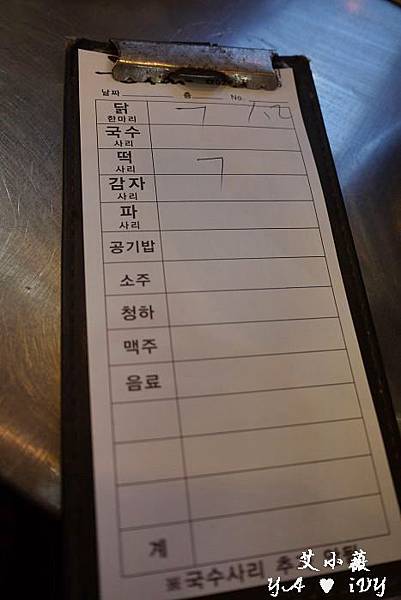 날짜 층 No.
닭
한마리
ㄱ
국수
사리
떡
사리
ㄱ
감자
사리
파
사리
공기밥
소주
청하
맥주
음료
계
※국수사리 추
艾小薇
YA ♥ iVY